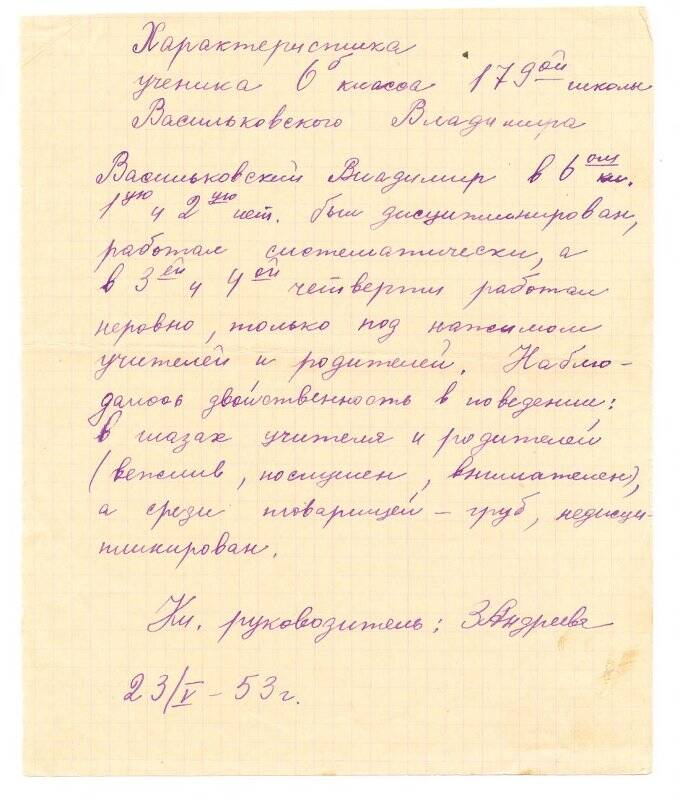 Характеристика
ученика 6б класса 179ой школы
Васильковского Владимира
Васильковский Владимир в 6ом кл.
1ую и 2ую чет. был дисциплинирован,
работал систематически, а
в 3ей и 4ой четверти работал
неровно, только под нажимом
учителей и родителей. Наблю-
далось двойственность в поведении:
в глазах учителя и родителей
(вежлив, послушен, внимателен),
а среди товарищей – груб, недисци-
плинирован.
Кл. руководитель: ЗАндреева
23/V – 53 г.